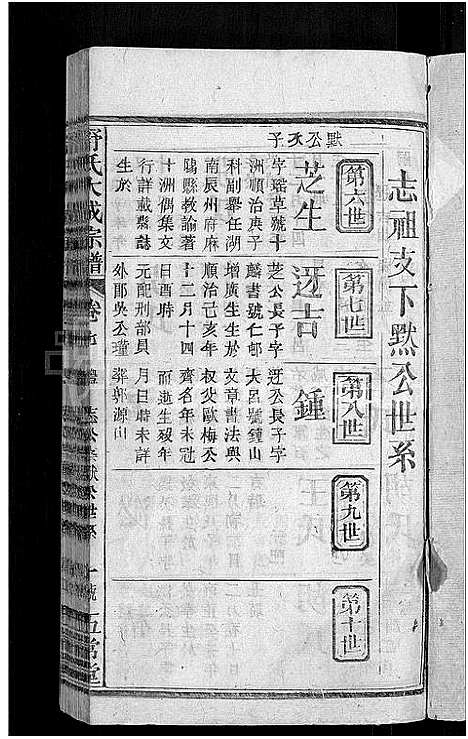 志祖支下默公世系
第六世
第七世
第八世
第九世
第十世
默公次子
芝生
字瑶草號十
洲順治庚子
科副舉任湖
南辰州府麻
陽縣教諭著
十洲偶集文
行詳載縣誌
生於
迓吉
芝公長子字
麟書號仁邨
增廣生生於
順治己亥年
十二月十四
日酉時
元配刑部員
外郎吳公瑾
鍾
迓公長子字
大呂號鐘山
文章書法與
叔父歐梅公
齊名年未冠
而逝生歿年
月日時未詳
葬郭源山
舒氏大成宗譜
卷七
志公支默公世系